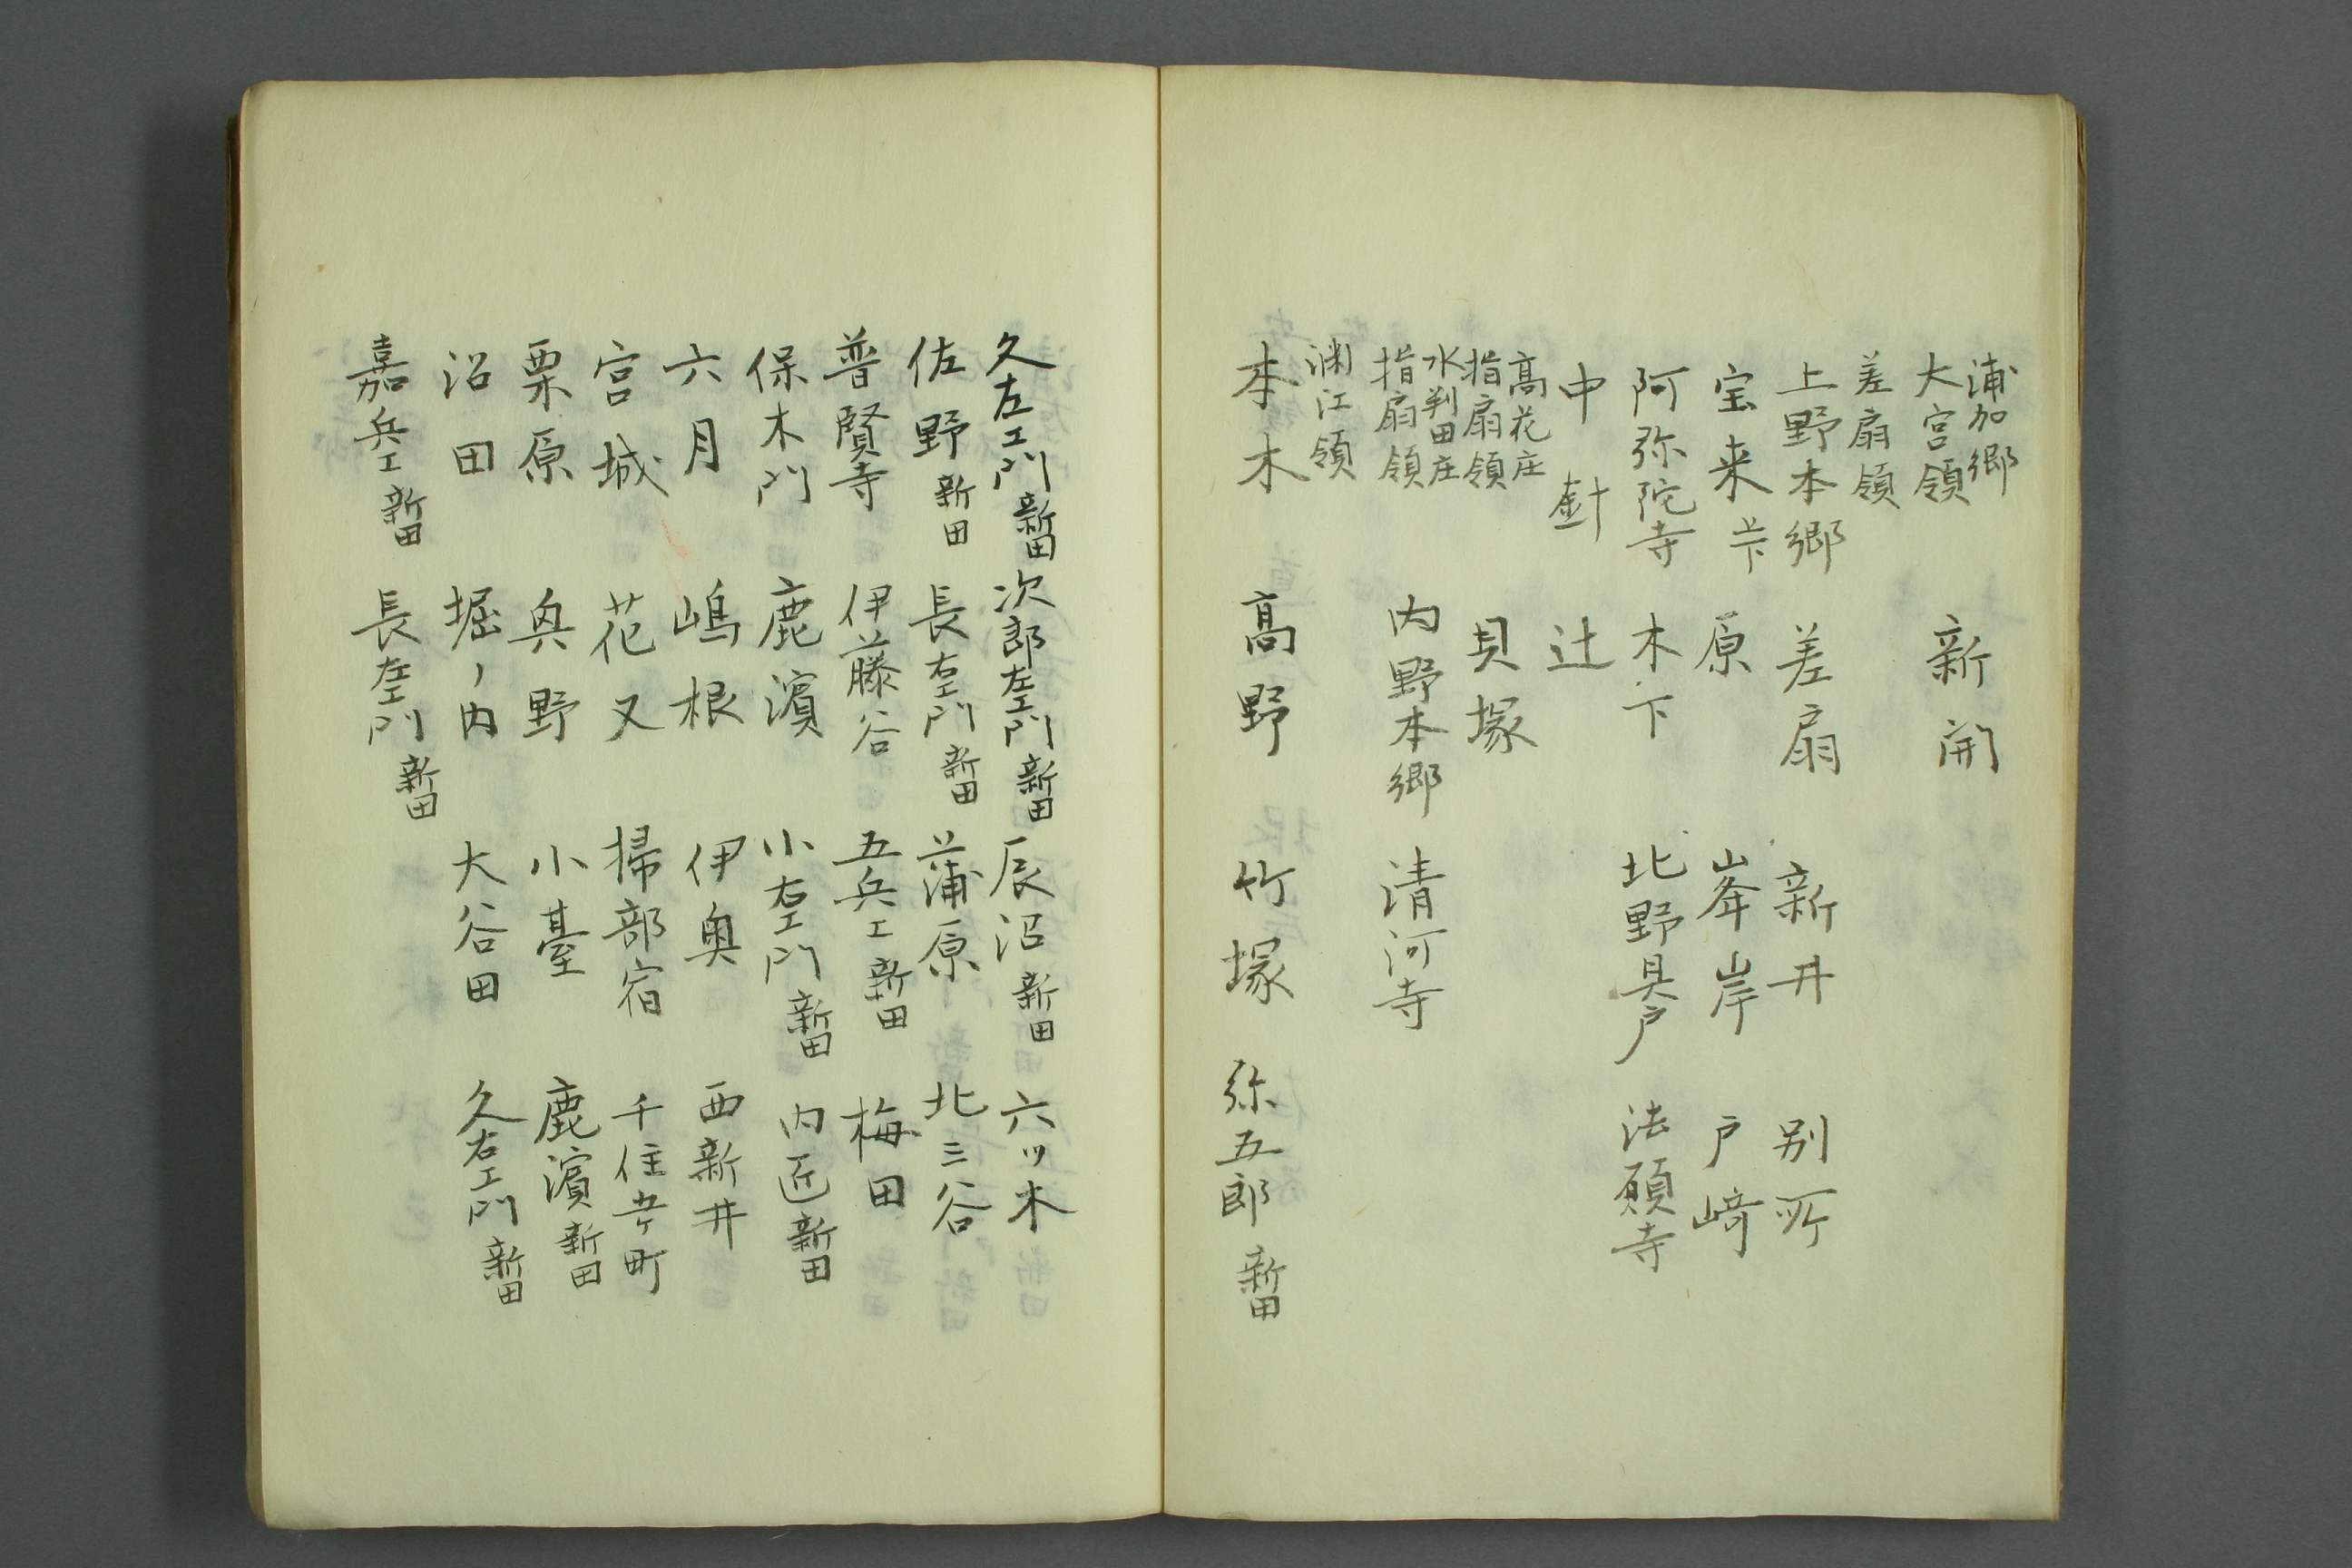 浦加郷
大宮領　新開
差扇領
上野本郷　差扇　新井　別所
宝来　原　峯岸　戸﨑
阿弥陀寺　木下　北野貝戸　法願寺
中釘　辻
高花庄
指扇領　貝塚
水判田庄
指扇領　内野本郷　清河寺
渕江領
本木　高野　竹塚　弥五郎新田
久左エ門新田　次郎左エ門新田　辰沼新田　六ッ木
佐野新田　長右エ門新田　蒲原　北三谷
普賢寺　伊藤谷　五兵エ新田　梅田
保木門　鹿濵　小右エ門新田　内匠新田
六月　嶋根　伊奥　西新井
宮城　花又　掃部宿　千住五ケ町
栗原　奥野　小臺　鹿濵新田
沼田　堀ノ内　大谷田　久右エ門新田
嘉兵エ新田　長左エ門新田